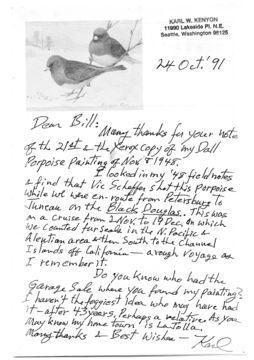 KARL W. KENYON
11990 Lakeside Pl. N.E.
Seattle, Washington 98125
24 Oct. '91
Dear Bill:
Many thanks for your note
of the 21st & the Xerox copy of my Dall
Porpoise Painting of Nov 8 1948.
I looked in my '48 field notes
& find that Vic Scheffer shot this porpoise
while we were en-route from Petersburg to
Juneau on the Black Douglas. This was
on a Cruise from 2 Nov. to 19 Dec. on which
we counted fur seals in the N. Pacific &
Aleutian area & then South to the Channel
Islands off California - a rough Voyage as
I remember it.
Do you know who had the
Garage Sale where you found my Painting?
I haven't the foggiest idea who may have had
it - after 43 years. Perhaps a relative. As you
May know my home town is La Jolla.
Many thanks & Best Wishes -
Karl